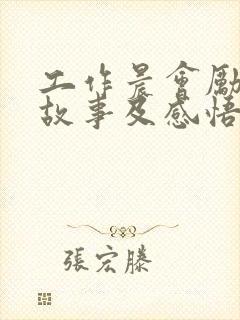 工作晨會勵
故事及感悟
張宏滕